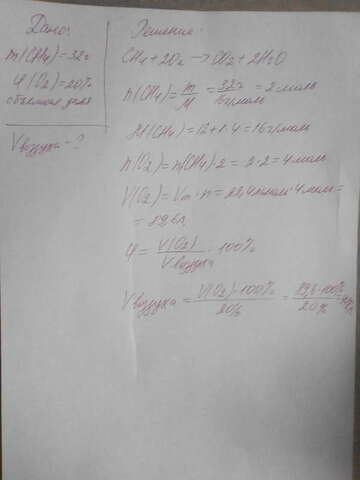 Дано:
m(CH4)=32г
φ(O2)=20%
объемная доля
Vвоздуха-?
Решение:
CH4+2O2→CO2+2H2O
n(CH4)=m/M=32г/16г/моль=2 моль
M(CH4)=12+1·4=16г/моль
n(O2)=n(CH4)·2=2·2=4моль
V(O2)=Vm·n=22,4л/моль·4моль=
=89,6л
φ=V(O2)/Vвоздуха·100%
Vвоздуха=V(O2)·100%/20%=89,6·100%/20%=